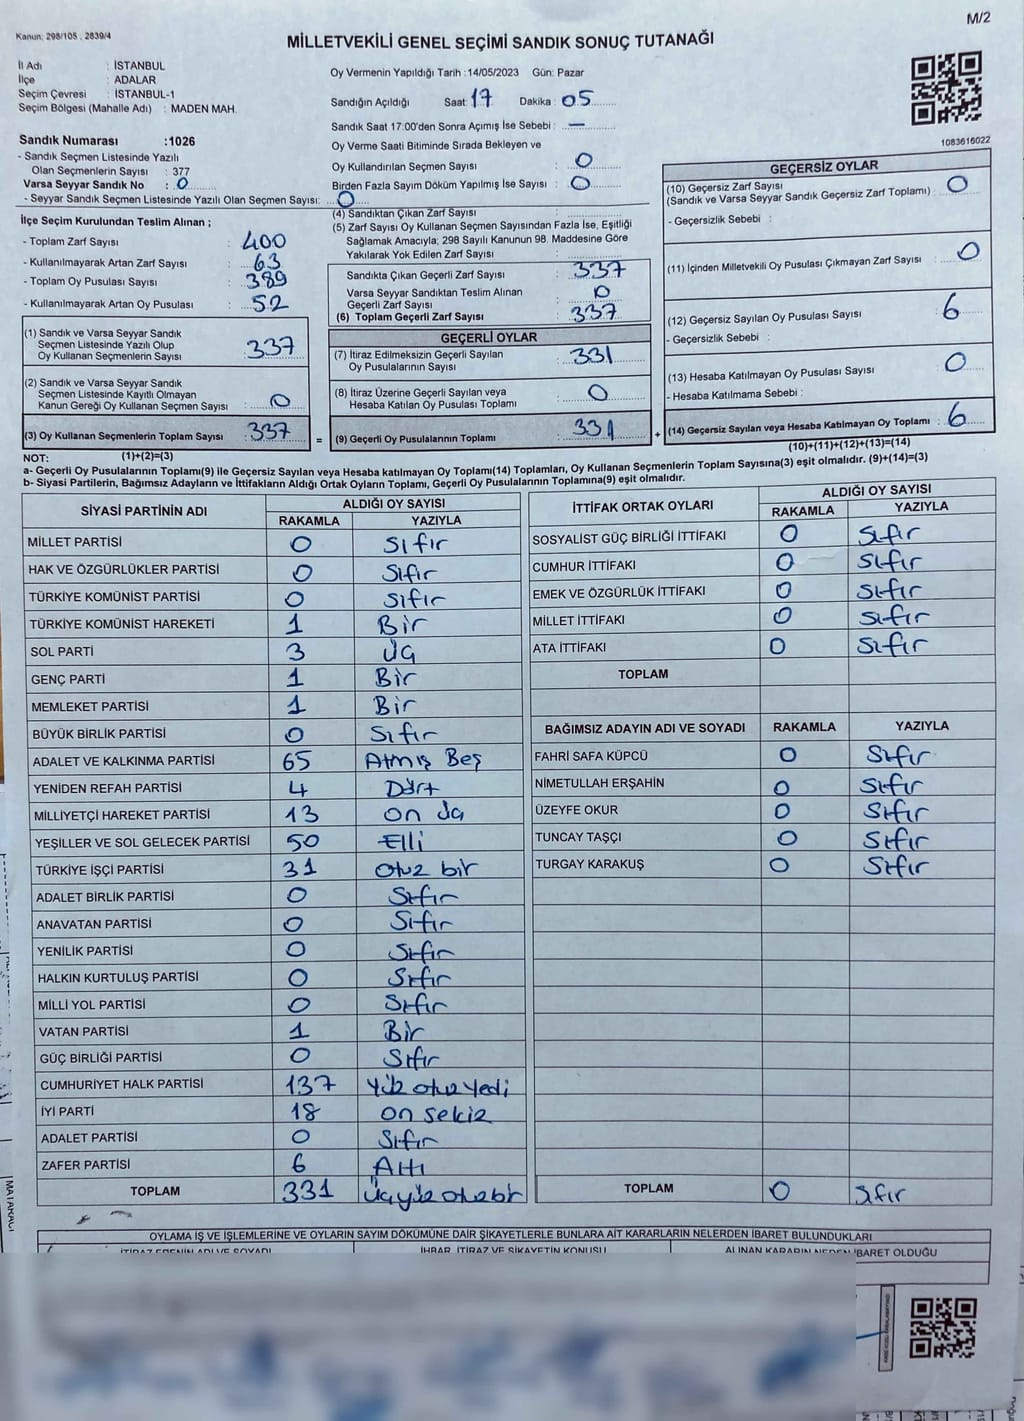 M/2
Kanun: 298/105 , 2839/4
MİLLETVEKİLİ GENEL SEÇİMİ SANDIK SONUÇ TUTANAĞI
İl Adı : İSTANBUL
İlçe : ADALAR
Seçim Çevresi : İSTANBUL-1
Seçim Bölgesi (Mahalle Adı) : MADEN MAH.
Sandık Numarası :1026
- Sandık Seçmen Listesinde Yazılı
Olan Seçmenlerin Sayısı : 377
Varsa Seyyar Sandık No : 0
- Seyyar Sandık Seçmen Listesinde Yazılı Olan Seçmen Sayısı: 0
Oy Vermenin Yapıldığı Tarih :14/05/2023 Gün: Pazar
Sandığın Açıldığı Saat: 17 Dakika : 05
Sandık Saat 17:00'den Sonra Açımış İse Sebebi : —
Oy Verme Saati Bitiminde Sırada Bekleyen ve
Oy Kullandırılan Seçmen Sayısı : 0
Birden Fazla Sayım Döküm Yapılmış İse Sayısı : 0
1083616022
İlçe Seçim Kurulundan Teslim Alınan ;
- Toplam Zarf Sayısı : 400
- Kullanılmayarak Artan Zarf Sayısı : 63
- Toplam Oy Pusulası Sayısı : 389
- Kullanılmayarak Artan Oy Pusulası : 52
(1) Sandık ve Varsa Seyyar Sandık
Seçmen Listesinde Yazılı Olup
Oy Kullanan Seçmenlerin Sayısı : 337
(2) Sandık ve Varsa Seyyar Sandık
Seçmen Listesinde Kayıtlı Olmayan
Kanun Gereği Oy Kullanan Seçmen Sayısı : 0
(3) Oy Kullanan Seçmenlerin Toplam Sayısı : 337
(4) Sandıktan Çıkan Zarf Sayısı :
(5) Zarf Sayısı Oy Kullanan Seçmen Sayısından Fazla İse, Eşitliği
Sağlamak Amacıyla; 298 Sayılı Kanunun 98. Maddesine Göre
Yakılarak Yok Edilen Zarf Sayısı :
Sandıkta Çıkan Geçerli Zarf Sayısı : 337
Varsa Seyyar Sandıktan Teslim Alınan
Geçerli Zarf Sayısı : 0
(6) Toplam Geçerli Zarf Sayısı : 337
GEÇERLİ OYLAR
(7) İtiraz Edilmeksizin Geçerli Sayılan
Oy Pusulalarının Sayısı : 331
(8) İtiraz Üzerine Geçerli Sayılan veya
Hesaba Katılan Oy Pusulası Toplamı : 0
= (9) Geçerli Oy Pusulalarının Toplamı : 331
GEÇERSİZ OYLAR
(10) Geçersiz Zarf Sayısı
(Sandık ve Varsa Seyyar Sandık Geçersiz Zarf Toplamı) : 0
- Geçersizlik Sebebi :
(11) İçinden Milletvekili Oy Pusulası Çıkmayan Zarf Sayısı : 0
(12) Geçersiz Sayılan Oy Pusulası Sayısı : 6
- Geçersizlik Sebebi :
(13) Hesaba Katılmayan Oy Pusulası Sayısı : 0
- Hesaba Katılmama Sebebi :
+ (14) Geçersiz Sayılan veya Hesaba Katılmayan Oy Toplamı : 6
NOT: (1)+(2)=(3) (10)+(11)+(12)+(13)=(14)
a- Geçerli Oy Pusulalarının Toplamı(9) ile Geçersiz Sayılan veya Hesaba katılmayan Oy Toplamı(14) Toplamları, Oy Kullanan Seçmenlerin Toplam Sayısına(3) eşit olmalıdır. (9)+(14)=(3)
b- Siyasi Partilerin, Bağımsız Adayların ve İttifakların Aldığı Ortak Oyların Toplamı, Geçerli Oy Pusulalarının Toplamına(9) eşit olmalıdır.
SİYASİ PARTİNİN ADI ALDIĞI OY SAYISI
RAKAMLA YAZIYLA
MİLLET PARTİSİ 0 Sıfır
HAK VE ÖZGÜRLÜKLER PARTİSİ 0 Sıfır
TÜRKİYE KOMÜNİST PARTİSİ 0 Sıfır
TÜRKİYE KOMÜNİST HAREKETİ 1 Bir
SOL PARTİ 3 Üç
GENÇ PARTİ 1 Bir
MEMLEKET PARTİSİ 1 Bir
BÜYÜK BİRLİK PARTİSİ 0 Sıfır
ADALET VE KALKINMA PARTİSİ 65 Atmış Beş
YENİDEN REFAH PARTİSİ 4 Dört
MİLLİYETÇİ HAREKET PARTİSİ 13 on üç
YEŞİLLER VE SOL GELECEK PARTİSİ 50 Elli
TÜRKİYE İŞÇİ PARTİSİ 31 otuz bir
ADALET BİRLİK PARTİSİ 0 Sıfır
ANAVATAN PARTİSİ 0 Sıfır
YENİLİK PARTİSİ 0 Sıfır
HALKIN KURTULUŞ PARTİSİ 0 Sıfır
MİLLİ YOL PARTİSİ 0 Sıfır
VATAN PARTİSİ 1 Bir
GÜÇ BİRLİĞİ PARTİSİ 0 Sıfır
CUMHURİYET HALK PARTİSİ 137 Yüz otuz yedi
İYİ PARTİ 18 on sekiz
ADALET PARTİSİ 0 Sıfır
ZAFER PARTİSİ 6 Altı
TOPLAM 331 Üçyüz otuz bir
İTTİFAK ORTAK OYLARI ALDIĞI OY SAYISI
RAKAMLA YAZIYLA
SOSYALİST GÜÇ BİRLİĞİ İTTİFAKI 0 Sıfır
CUMHUR İTTİFAKI 0 Sıfır
EMEK VE ÖZGÜRLÜK İTTİFAKI 0 Sıfır
MİLLET İTTİFAKI 0 Sıfır
ATA İTTİFAKI 0 Sıfır
TOPLAM
BAĞIMSIZ ADAYIN ADI VE SOYADI RAKAMLA YAZIYLA
FAHRİ SAFA KÜPCÜ 0 Sıfır
NİMETULLAH ERŞAHİN 0 Sıfır
ÜZEYFE OKUR 0 Sıfır
TUNCAY TAŞÇI 0 Sıfır
TURGAY KARAKUŞ 0 Sıfır
TOPLAM 0 Sıfır
OYLAMA İŞ VE İŞLEMLERİNE VE OYLARIN SAYIM DÖKÜMÜNE DAİR ŞİKAYETLERLE BUNLARA AİT KARARLARIN NELERDEN İBARET BULUNDUKLARI
İTİRAZ EDENİN ADI VE SOYADI İHBAR, İTİRAZ VE ŞİKAYETİN KONUSU ALINAN KARARIN NEDEN İBARET OLDUĞU